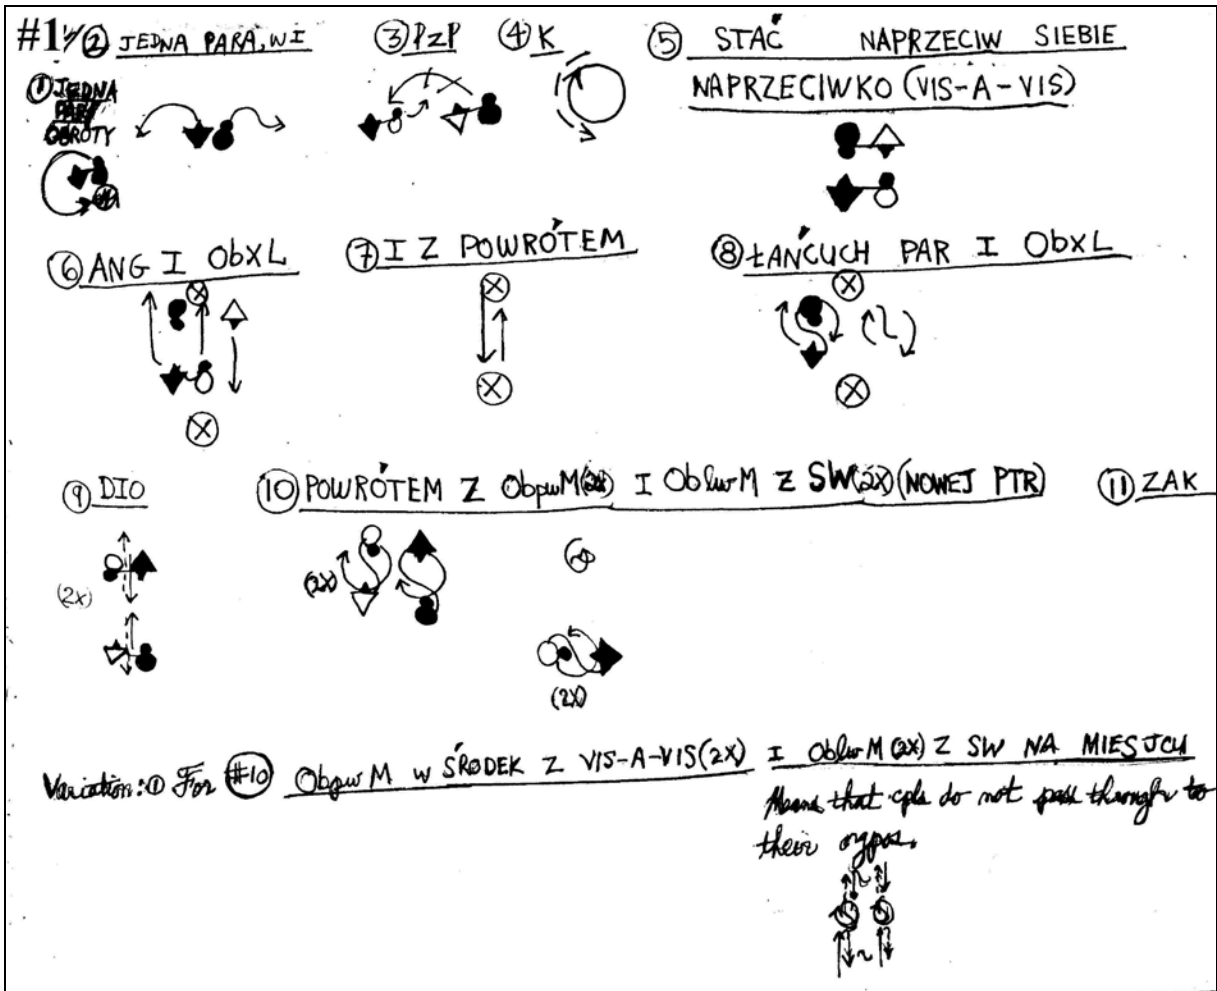 #1
② JEDNA PARA, W I
③ PzP
④ K
⑤ STAĆ NAPRZECIW SIEBIE
NAPRZECIWKO (VIS-A-VIS)
① JEDNA
PARA
OBROTY
⑥ ANG I ObxL
⑦ I Z POWRÓTEM
⑧ ŁAŃCUCH PAR I ObxL
⑨ DIO
(2x)
⑩ POWRÓTEM Z ObpwM(2x) I OblwM Z SW(2x)(NOWEJ PTR)
(2x)
(2x)
⑪ ZAK
Variation: ① For #10 ObpwM W ŚRODEK Z VIS-A-VIS(2X) I OblwM(2x) Z SW NA MIESJCU
Means that cpls do not pass through to
their orgpos.